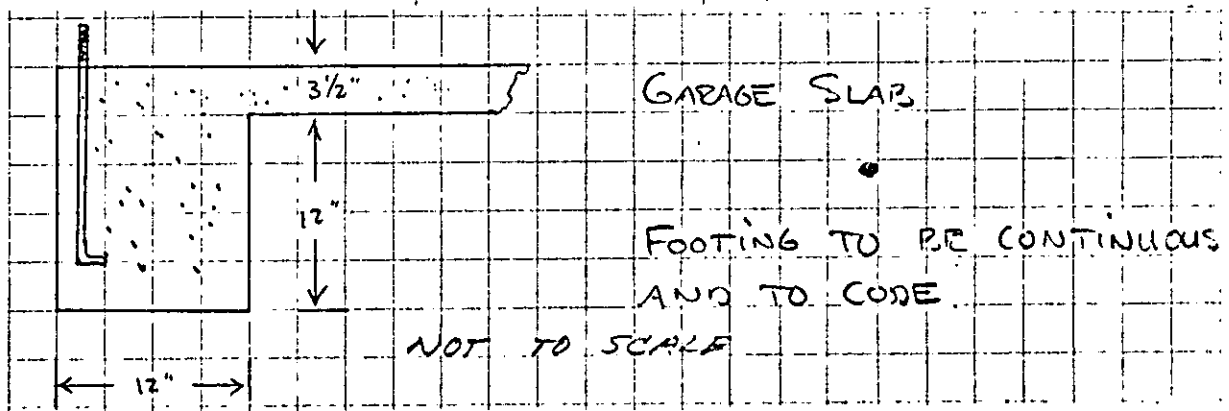 3½"
GARAGE SLAB
12"
FOOTING TO BE CONTINUOUS
AND TO CODE.
NOT TO SCALE
12"